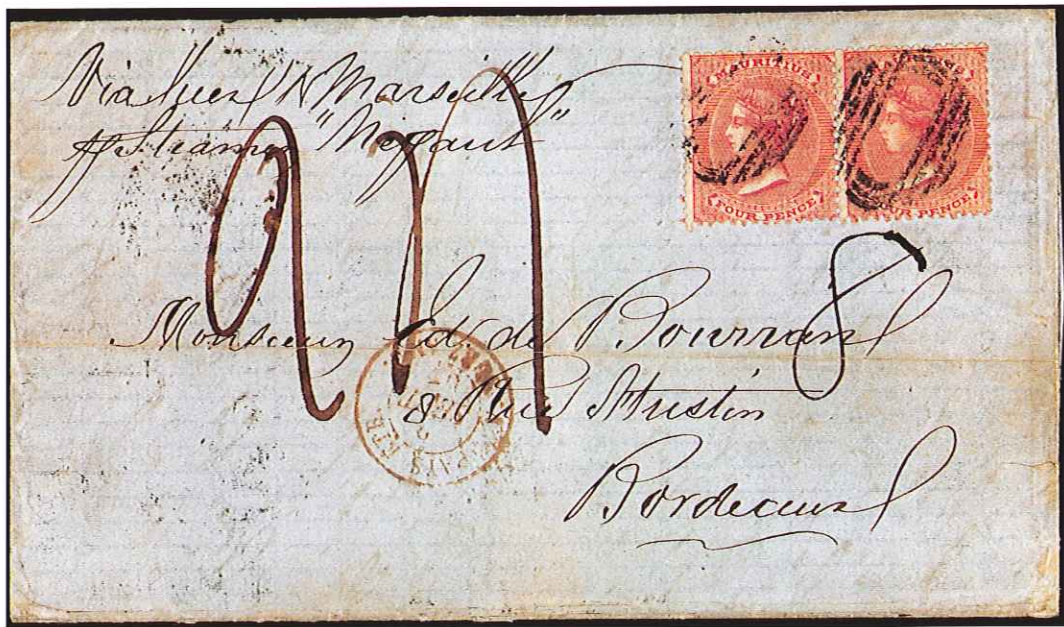 Via Suez & Marseille
p Steamer "Népaul"
MAURITIUS
FOUR PENCE
FOUR PENCE
8
Monsieur Ed. de Bourran
8 Rue Hustin
Bordeaux